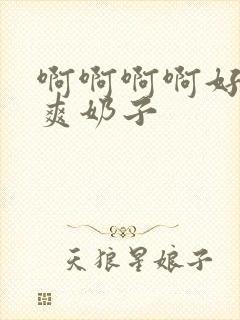 啊啊啊啊好
爽奶子
天狼星娘子